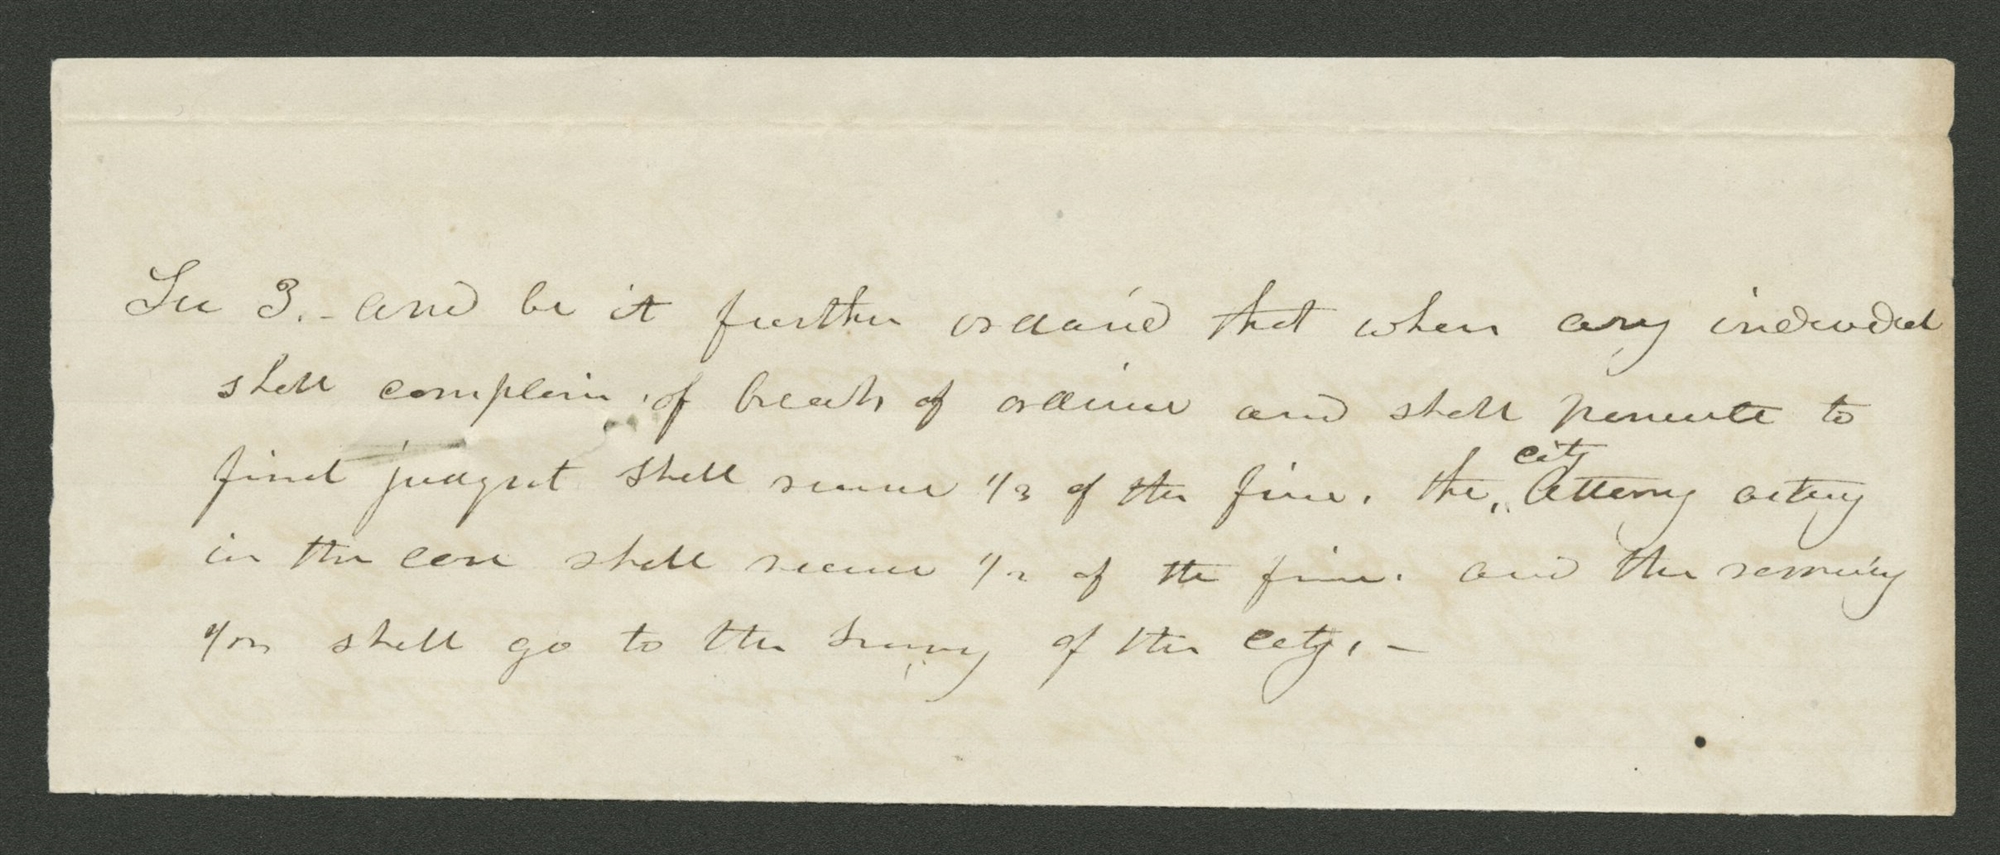 Sec 3. - And be it further ordaind that when any individual
shall complain of breach of ordinance and shall persecute to
final judgment shall receive 1/3 of the fine. the city Attorney acting
in the case shall receive 1/3 of the fine. and the remaining
1/3 shall go to the treasury of the city. -